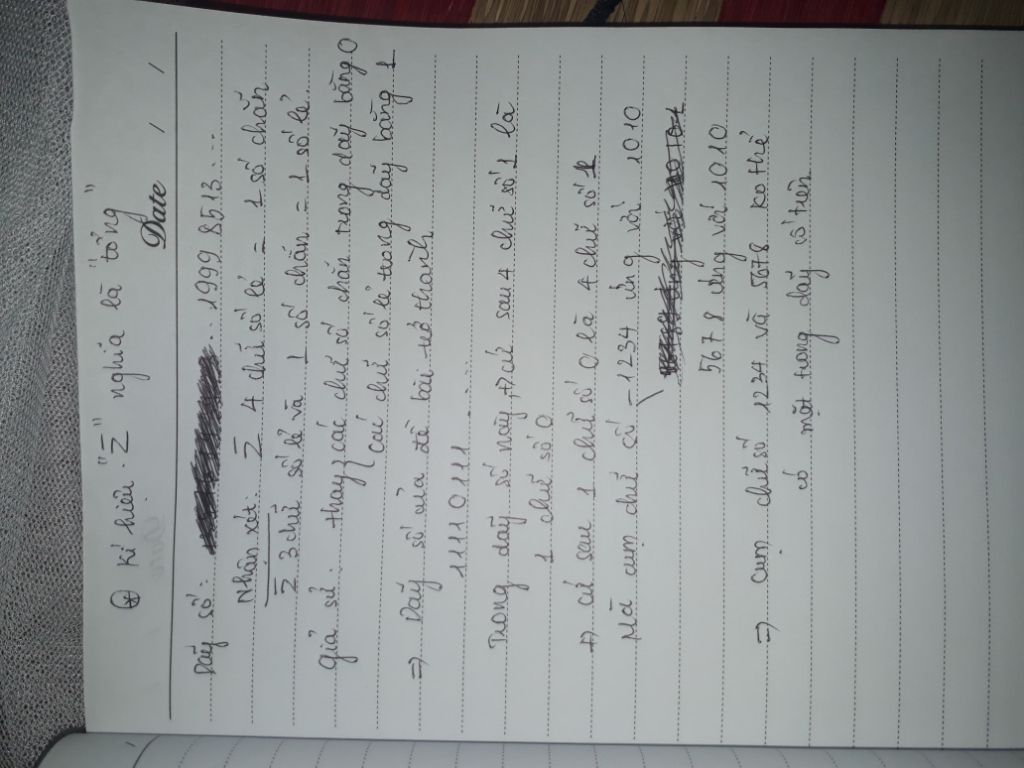 ⊕ Kí hiệu: "Σ" nghĩa là "tổng"
Date / /
Dãy số: ... 1999 8513....
Nhận xét: Σ 4 chữ số lẻ = 1 số chẵn
Σ 3 chữ số lẻ và 1 số chẵn = 1 số lẻ
Giả sử: thay các chữ số chẵn trong dãy bằng 0
các chữ số lẻ trong dãy bằng 1
=> Dãy số của đề bài trở thành
1111 0111......
Trong dãy số này, cứ sau 4 chữ số 1 là
1 chữ số 0
cứ sau 1 chữ số 0 là 4 chữ số 1
Mà cụm chữ số - 1234 ứng với 1010
5678 ứng với 1010
=> cụm chữ số 1224 và 5678 ko thể
có mặt trong dãy số trên